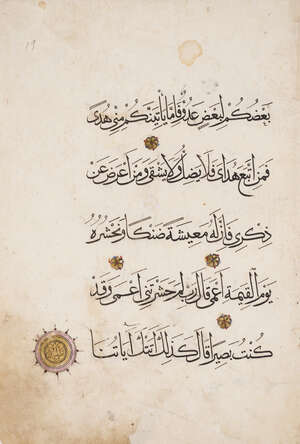 ١٩
بَعْضُكُمْ لِبَعْضٍ عَدُوٌّ فَإِمَّا يَأْتِيَنَّكُمْ مِنِّي هُدًى
فَمَنِ اتَّبَعَ هُدَايَ فَلَا يَضِلُّ وَلَا يَشْقَى وَمَنْ أَعْرَضَ عَنْ
ذِكْرِي فَإِنَّ لَهُ مَعِيشَةً ضَنْكًا وَنَحْشُرُهُ
يَوْمَ الْقِيمَةِ أَعْمَى قَالَ رَبِّ لِمَ حَشَرْتَنِي أَعْمَى وَقَدْ
كُنْتُ بَصِيرًا قَالَ كَذَلِكَ أَتَتْكَ آيَاتُنَا